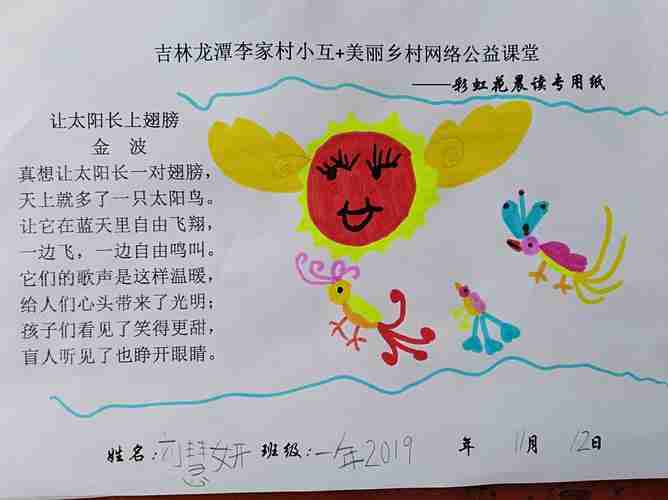 吉林龙潭李家村小互+美丽乡村网络公益课堂
——彩虹花晨读专用纸
让太阳长上翅膀
金 波
真想让太阳长一对翅膀，
天上就多了一只太阳鸟。
让它在蓝天里自由飞翔，
一边飞，一边自由鸣叫。
它们的歌声是这样温暖，
给人们心头带来了光明；
孩子们看见了笑得更甜，
盲人听见了也睁开眼睛。
姓名：慧妍 班级：一年2019 年 11月 12日